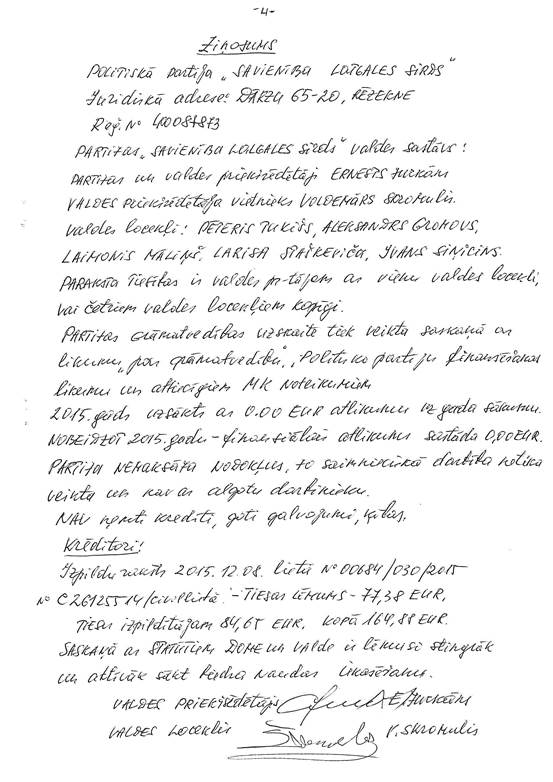 -4-
Ziņojums
POLITISKĀ PARTIJA „SAVIENĪBA LATGALES SIRDS"
Juridiskā adrese: DĀRZU 65-20, RĒZEKNE
Reģ. Nº 40008
PARTIJAS „SAVIENĪBA LATGALES SIRDS" valdes sastāvs:
PARTIJAS un valdes priekšsēdētājs ERNESTS JURKĀNS
VALDES PRIEKŠSĒDĒTĀJA vietnieks VOLDEMĀRS SKROMULIS.
valdes locekļi: PĒTERIS ALEKSANDRS GROMOVS,
LAIMONIS MĀLIŅŠ, LARISA STAŠKEVIČA, IVANS SIŅICINS.
PARAKSTA TIESĪBAS ir valdes pr-tājam ar vienu valdes locekli,
vai četriem valdes locekļiem kopīgi.
PARTIJAS GRĀMATVEDĪBAS UZSKAITE tiek veikta saskaņā ar
likumu „par grāmatvedību", „Politisko partiju finansēšanas
likumu un attiecīgiem MK Noteikumiem
2015. gads uzsākts ar 0.00 EUR atlikumu uz gada sākumu.
NOBEIDZOT 2015. gadu - finansiālais atlikums sastāda 0,00 EUR.
PARTIJA NEMAKSĀJA NODOKĻUS, jo saimnieciskā darbība netika
veikta un nav ar algotu darbinieku.
NAV ņemti kredīti, doti galvojumi, ķīlas.
Kreditori:
Izpildu raksts 2015.12.08. lietā Nº 00684/030/2015
Nº C26125514/civillietā - TIESAS LĒMUMS - 77,38 EUR,
Tiesu izpildītājam 84,65 EUR, KOPĀ 164,88 EUR.
SASKAŅĀ ar STATŪTIEM DOME un VALDE ir lēmusi stingrāk
un aktīvāk sākt biedra Naudas iekasēšanu.
VALDES PRIEKŠSĒDĒTĀJS E. JURKĀNS
VALDES LOCEKLIS V. SKROMULIS